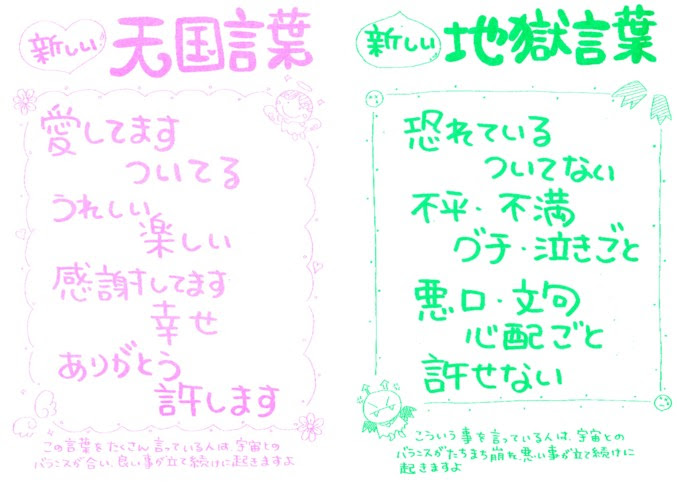 新しい 天国言葉
愛してます
ついてる
うれしい
楽しい
感謝してます
幸せ
ありがとう
許します
この言葉をたくさん言っている人は、宇宙との
バランスが合い、良い事が立て続けに起きますよ
新しい 地獄言葉
恐れている
ついてない
不平・不満
グチ・泣きごと
悪口・文句
心配ごと
許せない
こういう事を言っている人は、宇宙との
バランスがたちまち崩れ、悪い事が立て続けに
起きますよ